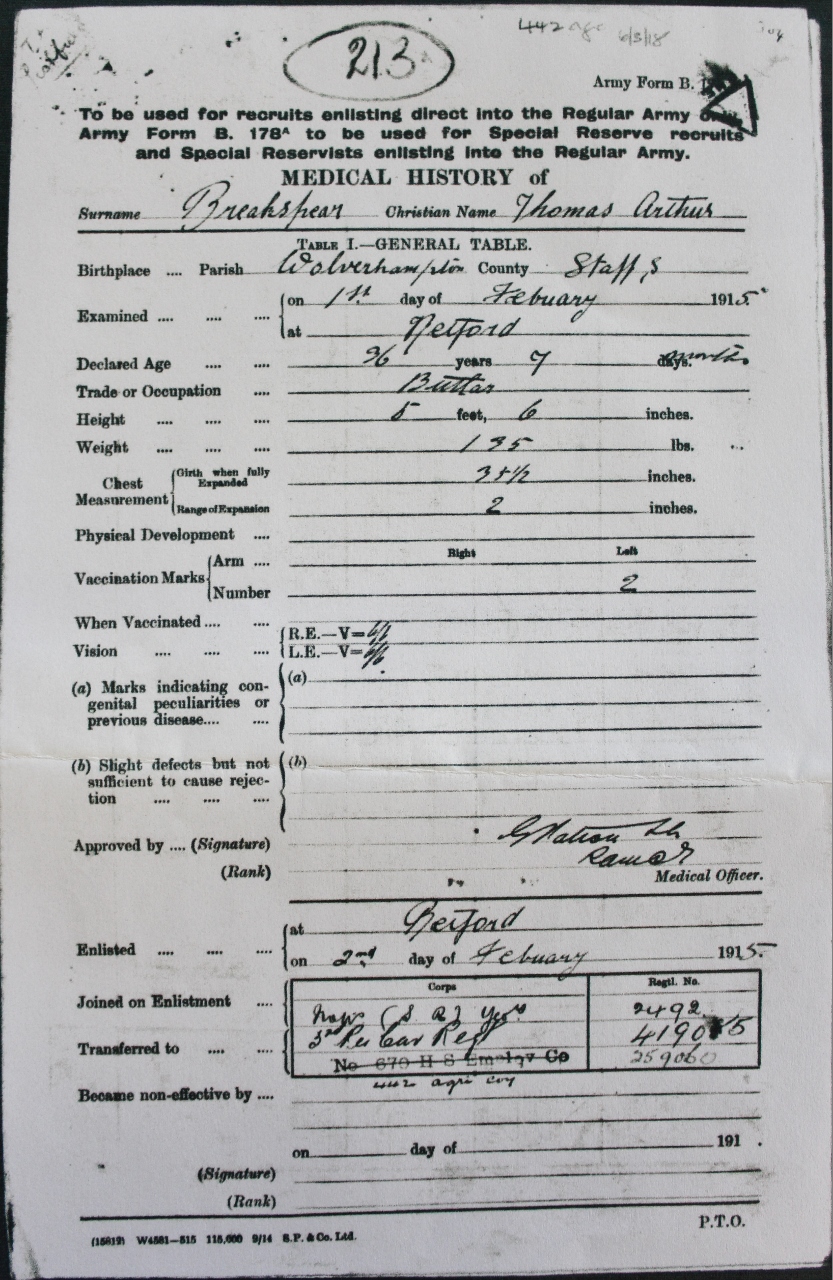 442 agr 6/3/18
213
Army Form B.
To be used for recruits enlisting direct into the Regular Army only
Army Form B. 178A to be used for Special Reserve recruits
and Special Reservists enlisting into the Regular Army.
MEDICAL HISTORY of
Surname Breakspear Christian Name Thomas Arthur
TABLE I.—GENERAL TABLE.
Birthplace .... Parish Wolverhampton County Staffs
Examined .... .... .... on 1st day of Febuary 1915
at Retford
Declared Age .... .... 36 years 7 days. months
Trade or Occupation .... Buttar
Height .... .... .... 5 feet, 6 inches.
Weight .... .... .... 135 lbs.
Chest Measurement Girth when fully Expanded 34½ inches.
Range of Expansion 2 inches.
Physical Development ....
Right Left
Vaccination Marks Arm ....
Number 2
When Vaccinated .... ....
Vision .... .... .... R.E.—V=6/6
L.E.—V=6/6
(a) Marks indicating con- (a)
genital peculiarities or
previous disease.... ....
(b) Slight defects but not (b)
sufficient to cause rejec-
tion .... .... ....
Approved by .... (Signature)
(Rank)
Medical Officer.
at Retford
Enlisted .... .... .... on 2nd day of Febuary 1915
Corps Regtl. No.
Joined on Enlistment .... Notts (S R) Yeo 2492
Transferred to .... .... 3rd Res Cav Regt 41905
No 670 H S Employ Co 259060
442 agri coy
Became non-effective by ....
on day of 191 .
(Signature)
(Rank)
P.T.O.
(15812) W4581—515 115,000 9/14 S.P. & Co. Ltd.